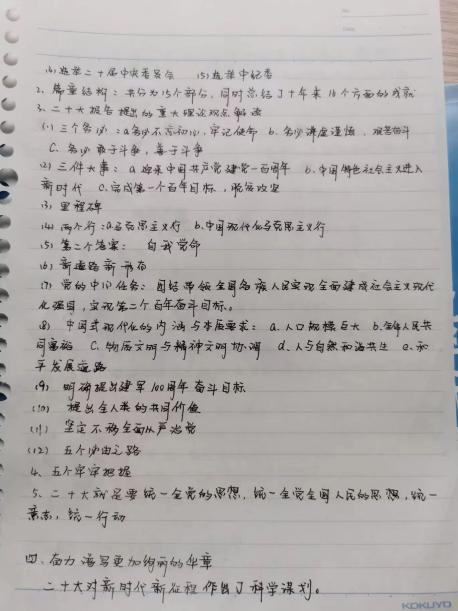 No.
Date
(4) 选举二十届中央委员会 (5) 选举中纪委
2. 篇章结构：共分为15个部分，同时总结了十年来16个方面的成就
3. 二十大报告提出的重大理论观点解读
(1) 三个务必：a.务必不忘初心，牢记使命 b.务必谦虚谨慎，艰苦奋斗
C. 务必敢于斗争，善于斗争
(2) 三件大事：a 迎来中国共产党建党一百周年 b.中国特色社会主义进入
新时代 C.完成第一个百年目标，脱贫攻坚
(3) 里程碑
(4) 两个行：a.马克思主义行 b.中国现代化马克思主义行
(5) 第二个答案：自我革命
(6) 新道路新形态
(7) 党的中心任务：团结带领全国各族人民实现全面建成社会主义现代
化强国，实现第二个百年奋斗目标。
(8) 中国式现代化的内涵与本质要求：a.人口规模巨大 b.全体人民共
同富裕 C.物质文明与精神文明协调 d.人与自然和谐共生 e.和
平发展道路
(9) 明确提出建军100周年奋斗目标
(10) 提出全人类的共同价值
(11) 坚定不移全面从严治党
(12) 五个必由之路
4. 五个牢牢把握
5. 二十大就是要统一全党的思想，统一全党全国人民的思想，统一
意志，统一行动
四.奋力谱写更加绚丽的华章
二十大对新时代新征程作出了科学谋划。
KOKUYO